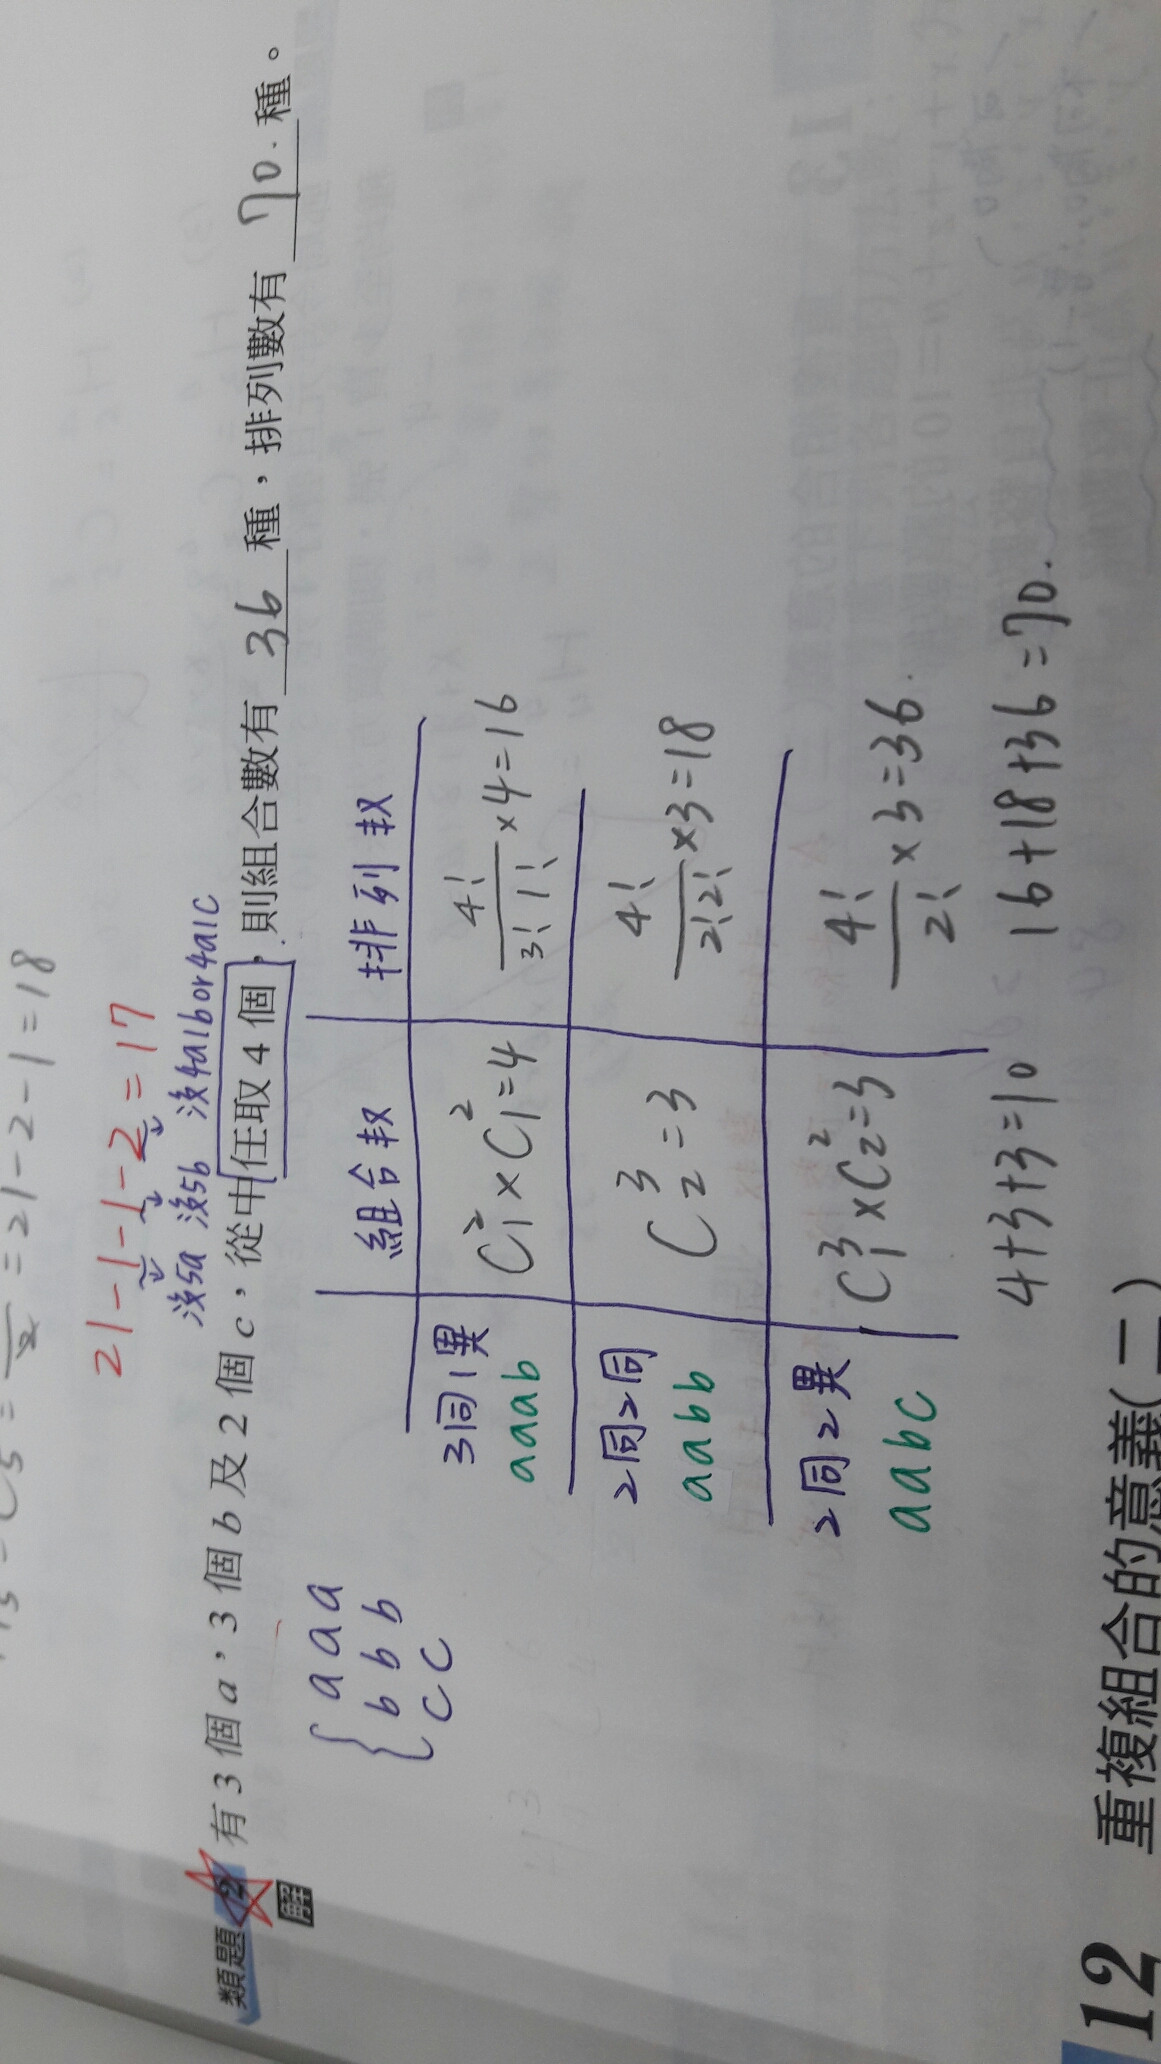 =21-2-1=18
21-1-1-2=17
沒5a 沒5b 沒4a1b or 4a1c
類題 2 有 3 個 a，3 個 b 及 2 個 c，從中任取 4 個，則組合數有 36 種，排列數有 70. 種。
解
a a a
b b b
c c
組合 排列
3同1異 C²₁×C²₁=4 4!/3!1!×4=16
aaab
2同2同 C³₂=3 4!/2!2!×3=18
aabb
2同2異 C³₁×C²₂=3 4!/2!×3=36.
aabc
4+3+3=10 16+18+36=70.
12 重複組合的意義(二)